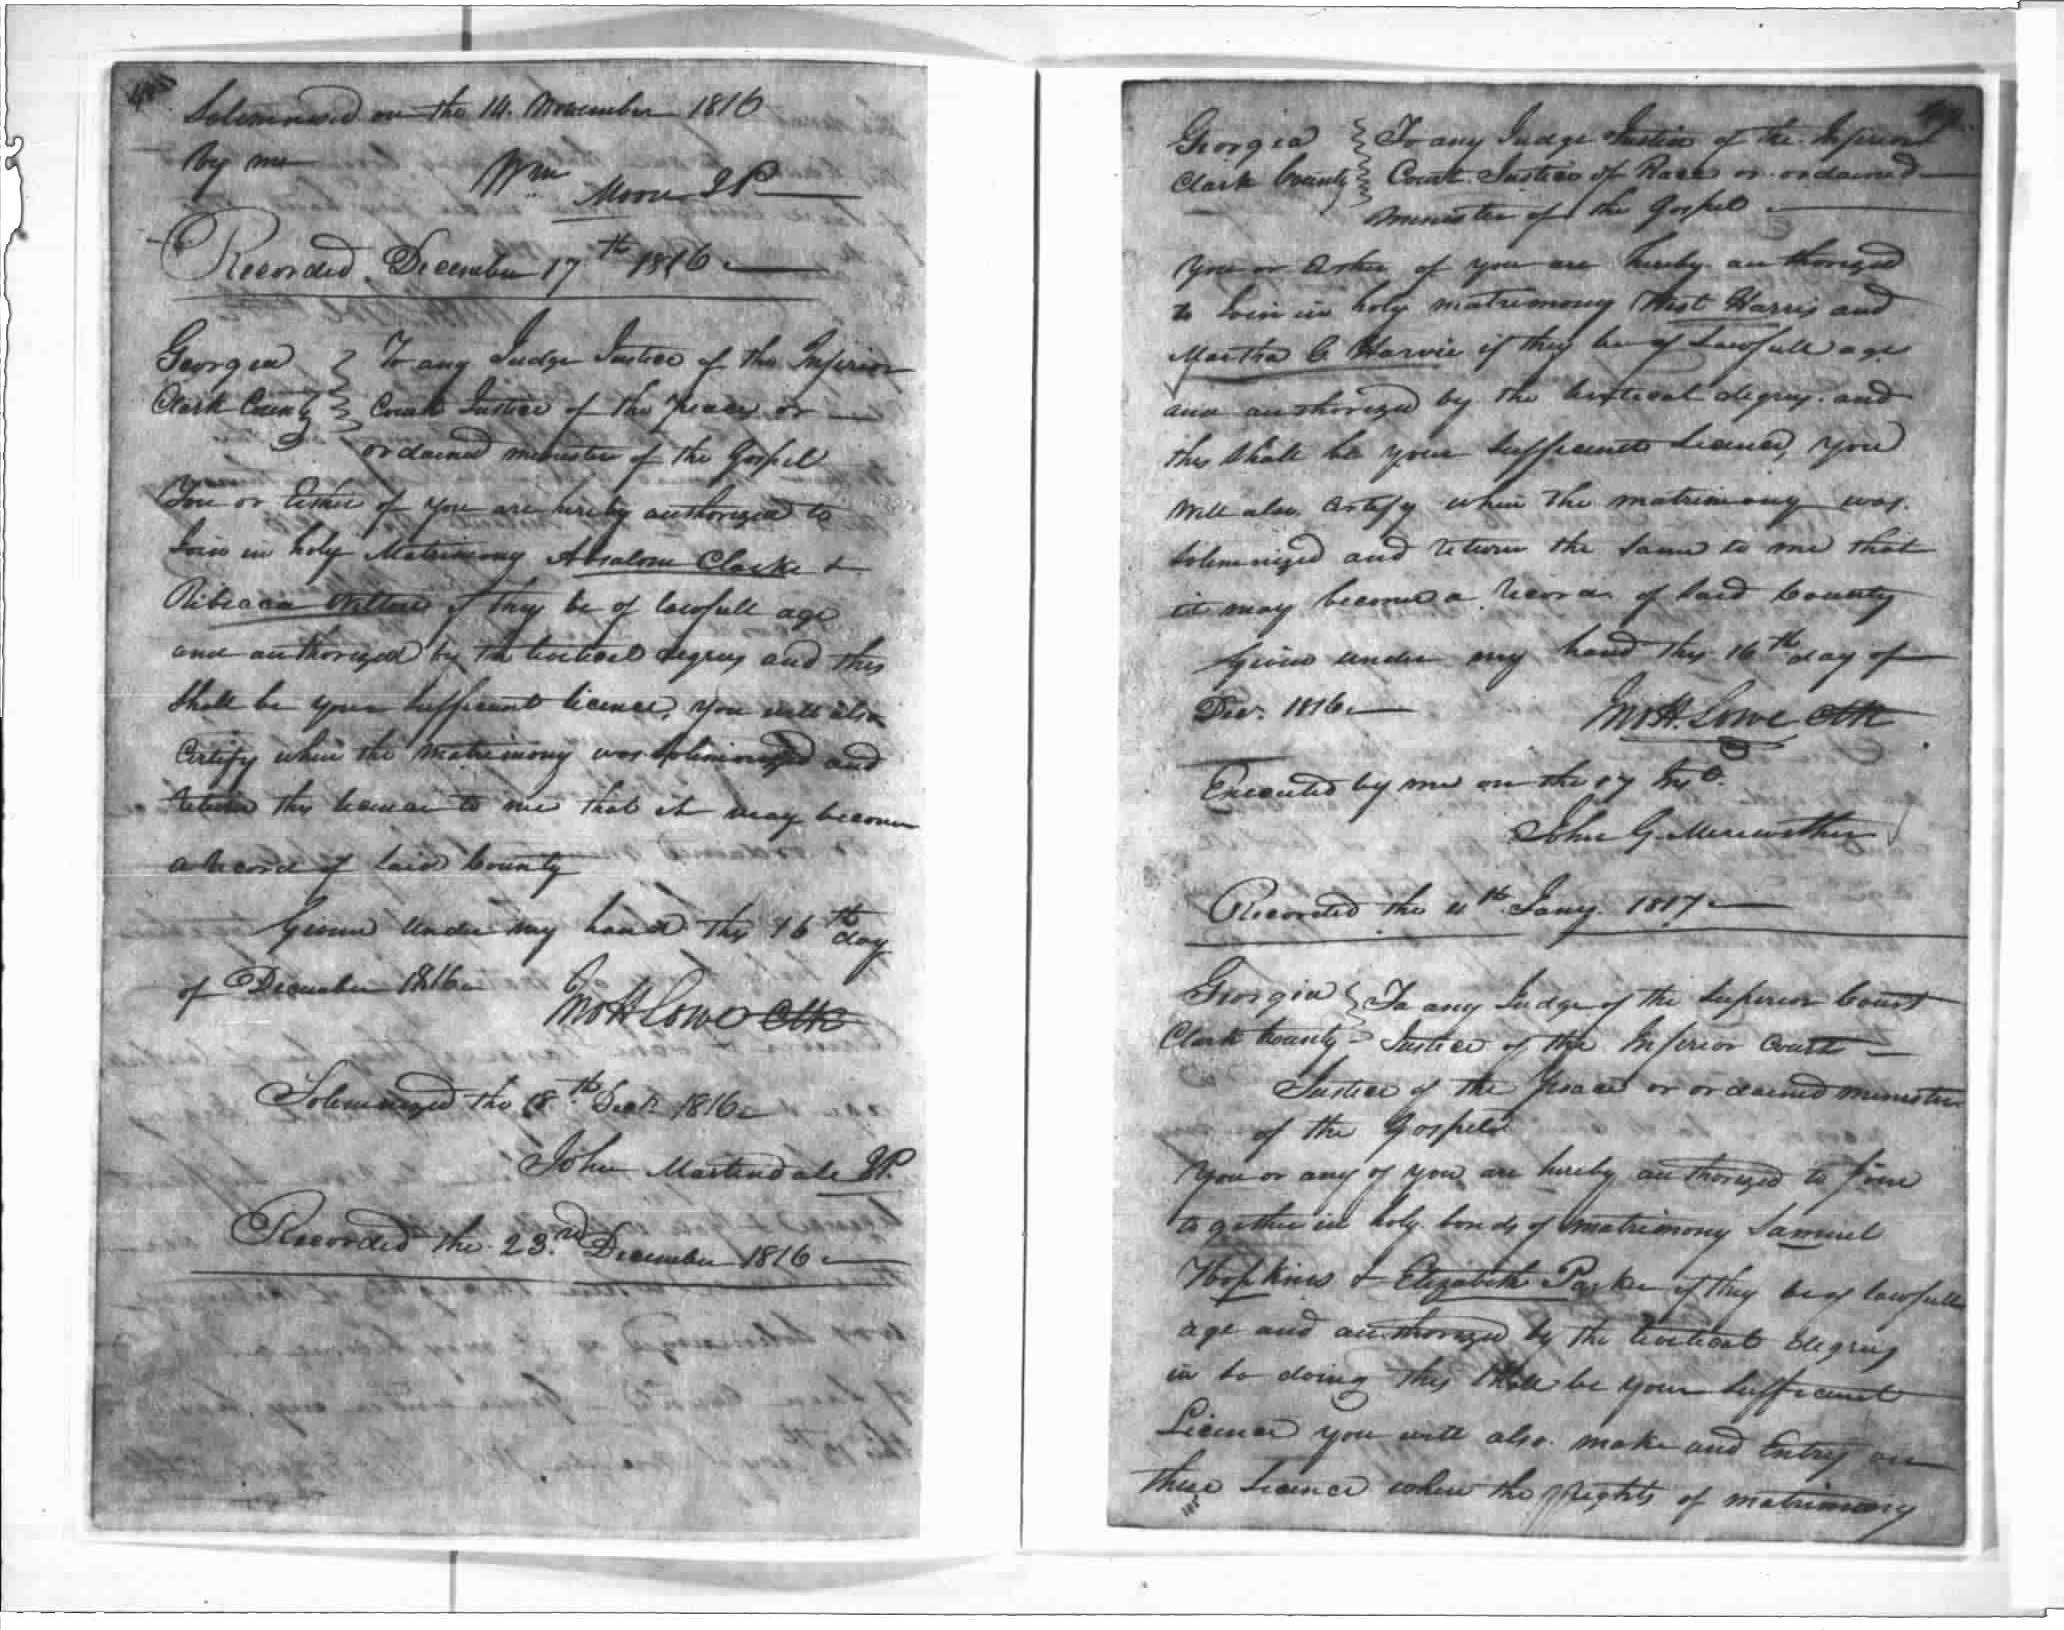 Solemnised on the 14. November 1816
by me
Wm
Moore JP
Recorded December 17th 1816
Georgia To any Judge Justice of the Inferior
Clark County Court Justice of the Peace or
ordained minister of the Gospel
You or Either of you are hereby authorized to
Join in holy Matrimony Absalom Clarke &
Rebecca if they be of lawfull age
and authorized by the levitical degrees and this
Shall be your Sufficient licence, you will also
Certify when the matrimony was solemnized and
return this licence to me that it may become
a record of Said County
Given Under my hand this 16th day
of December 1816
Jno H Lowe Clk
Solemnized the 18th Decr 1816
John Martindale JP.
Recorded the 23rd December 1816
Georgia To any Judge Justice of the Inferior
Clark County Court Justice of Peace or ordained
minister of the Gospel
You or Either of you are hereby authorized
to Join in holy matrimony West Harris and
Martha G Harvie if they be of Lawfull age
and authorized by the levitical degrees and
this Shall be your Sufficient Licence, You
will also Certify when the matrimony was
Solemnized and return the Same to me that
it may become a record of Said County
Given under my hand this 16th day of
Dec. 1816
Jno H. Lowe Clk
Executed by me on the 17 Inst.
John G. Meriwether
Recorded the 4th Jany. 1817
Georgia To any Judge of the Superior Court
Clark County Justice of the Inferior Court
Justice of the peace or ordained minister
of the Gospel
You or any of you are hereby authorized to Join
together in holy bonds of matrimony Samuel
Hopkins & Elizabeth Parker if they be of lawfull
age and authorized by the levitical degrees
in So doing this Shall be your Sufficient
Licence you will also make and Entry on
these Licence when the Rights of matrimony